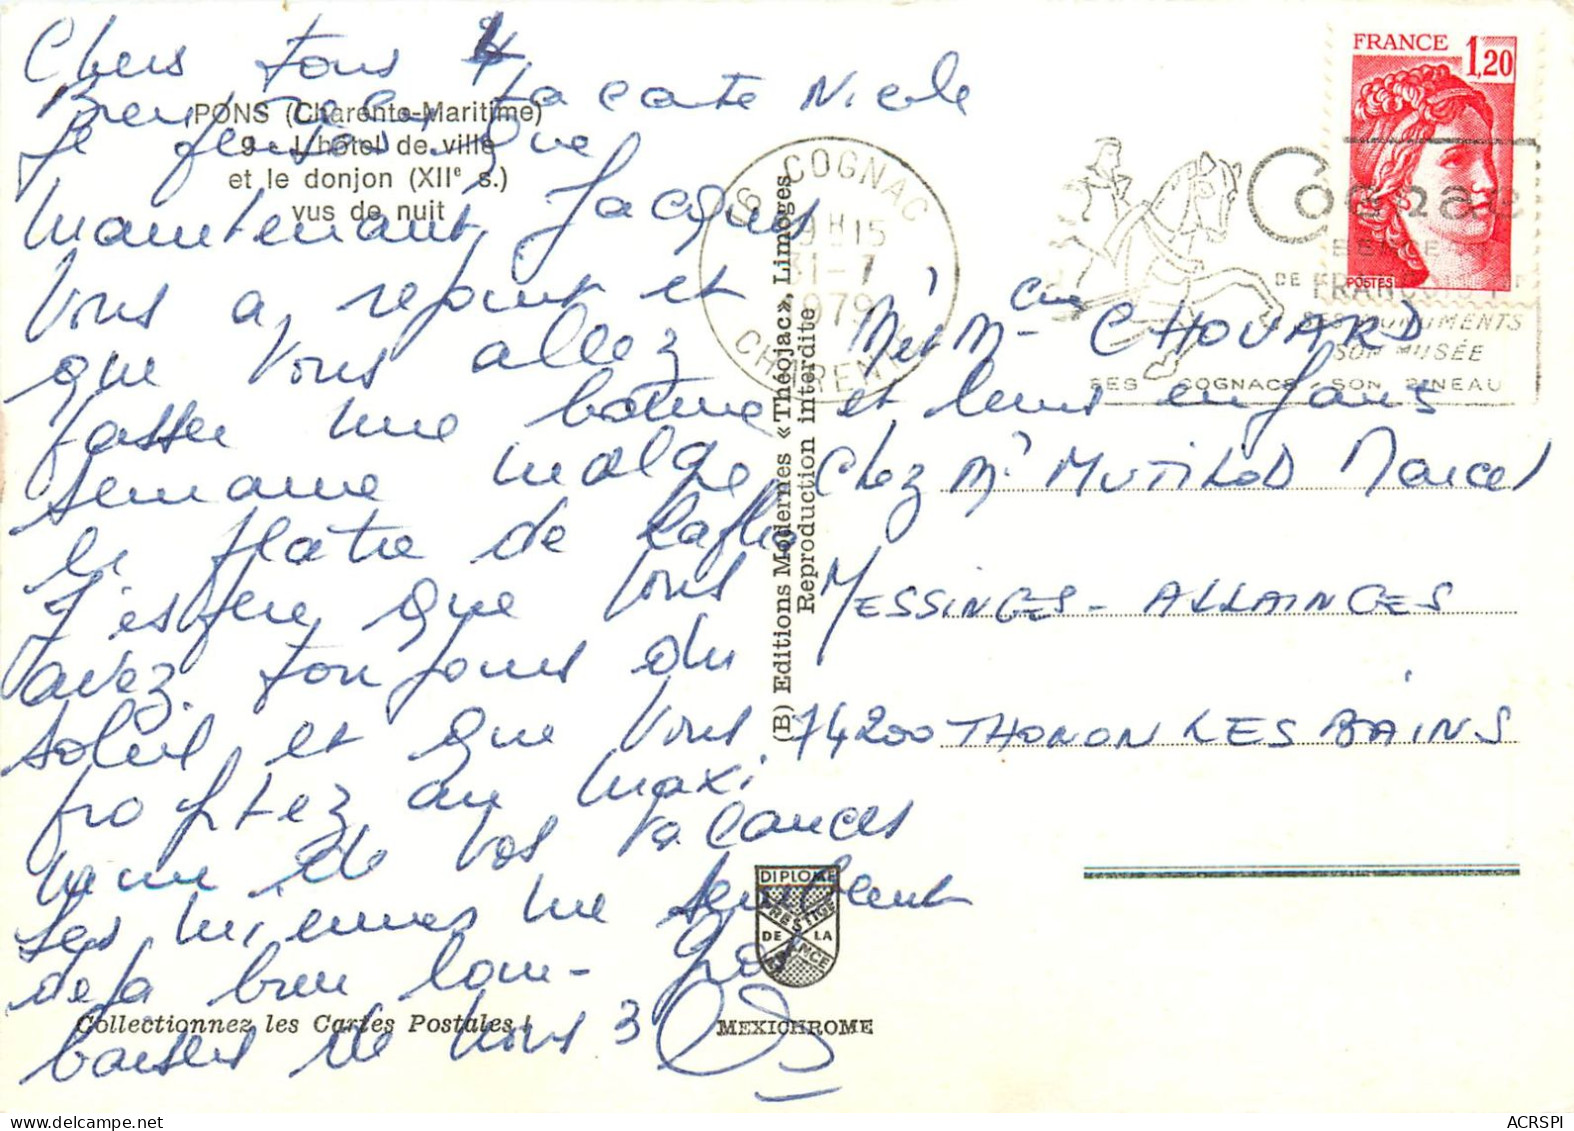 Chers tous 4
Bien reçu ta carte Nicole
Je pense que
maintenant Jacques
vous a rejoint et
que vous allez
passer une bonne
semaine malgré
le plâtre de
J'espère que vous
avez toujours du
soleil et que vous
profitez au maxi
mum de vos vacances
Les miennes me semblent
déjà bien loin - Gros
baisers de nous 3
PONS (Charente-Maritime)
9 - L'hôtel de ville
et le donjon (XIIe s.)
vus de nuit
Collectionnez les Cartes Postales !
(B) Editions Modernes «Théojac», Limoges
Reproduction interdite
16 COGNAC
9H15
31-7
1979
CHARENTE
Cognac
DE FRANÇOIS 1er
SES MONUMENTS
SON MUSÉE
SES COGNACS - SON PINEAU
FRANCE 1,20
POSTES
Mr et Mme CHOUARD
et leurs enfants
chez Mr MUTILOD Marcel
MESSINGES - ALLAINGES
74200 THONON LES BAINS
DIPLOME
PRESTIGE
DE LA
FRANCE
MEXICHROME
ACRSPI